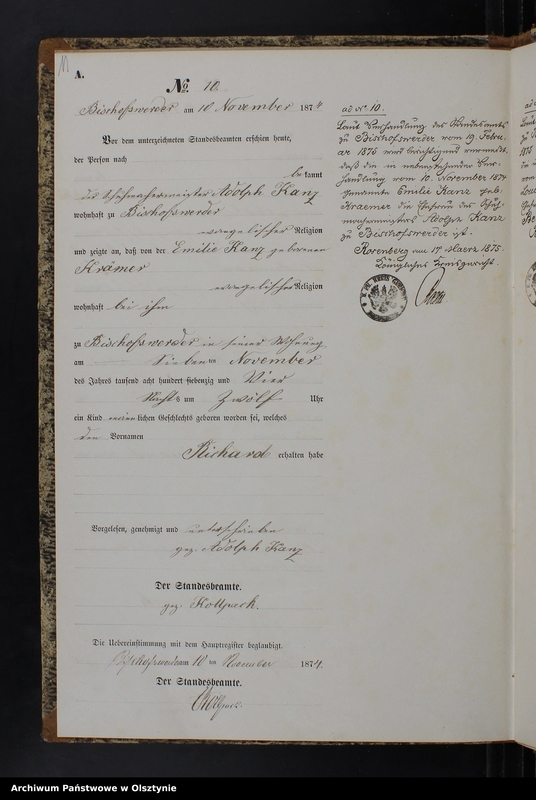 11
A.
No. 10.
Bischofswerder am 10 November 1874
Vor dem unterzeichneten Standesbeamten erschien heute,
der Person nach
be kannt
der Schuhmachermeister Adolph Kanz
wohnhaft zu Bischofswerder
evangelischer Religion
und zeigte an, daß von der Emilie Kanz geborenen
Krämer
evangelischer Religion
wohnhaft bei ihm
zu Bischofswerder in seiner Wohnung
am sieben ten November
des Jahres tausend acht hundert siebenzig und Vier
Nachts um Zwölf Uhr
ein Kind männlichen Geschlechts geboren worden sei, welches
den Vornamen
Richard erhalten habe
Vorgelesen, genehmigt und unterschrieben
gez. Adolph Kanz
Der Standesbeamte.
gez. Kollpack.
Die Uebereinstimmung mit dem Hauptregister beglaubigt.
Bischofswerder am 10 ten November 1874.
Der Standesbeamte.
Kollpack.
ad No. 10.
Laut Verhandlung des Standesamts
zu Bischofswerder vom 19. Febru-
ar 1875 wird berichtigend vermerkt,
daß die in nebenstehender Ver-
handlung vom 10. November 1874
genannte Emilie Kanz geb.
Kraemer die Ehefrau des Schuh-
machermeisters Adolph Kanz
zu Bischofswerder ist.
Rosenberg am 17 Maerz 1875.
Königliches Kreisgericht.
Archiwum Państwowe w Olsztynie